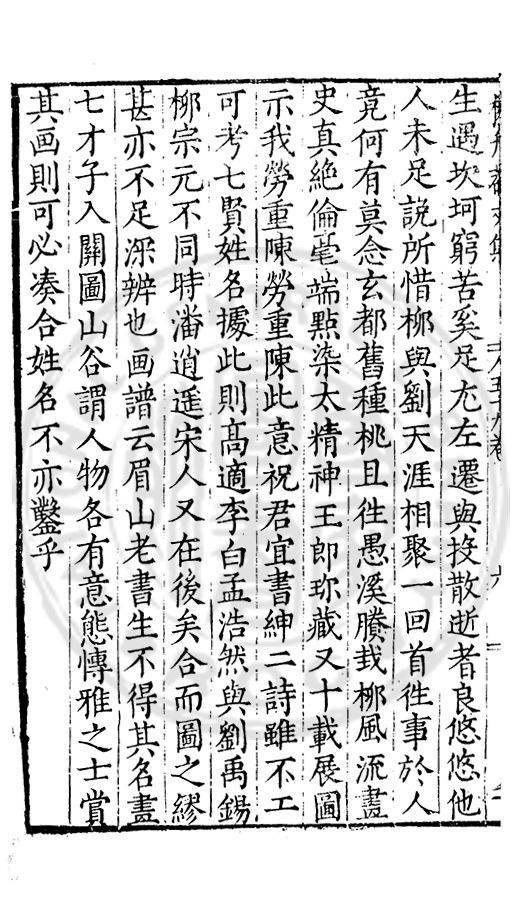 生遇坎坷窮苦奚足尤左遷與投散逝者良悠悠他
人未足說所惜栁與劉天涯相聚一回首徃事於人
竟何有莫念玄都舊種桃且徃愚溪賸栽栁風流畫
史真絶倫毫端點染太精神王郎珎藏又十載展圖
示我勞重陳勞重陳此意祝君宜書紳二詩雖不工
可考七賢姓名據此則高適李白孟浩然與劉禹錫
栁宗元不同時潘逍遥宋人又在後矣合而圖之繆
甚亦不足深辨也画譜云眉山老書生不得其名畫
七才子入關圖山谷謂人物各有意態慱雅之士賞
其画則可必湊合姓名不亦鑿乎